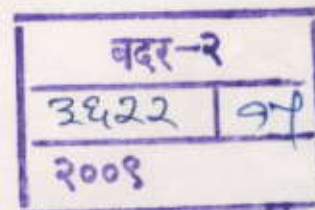 बदर-२
३६२२ | १५
२००९